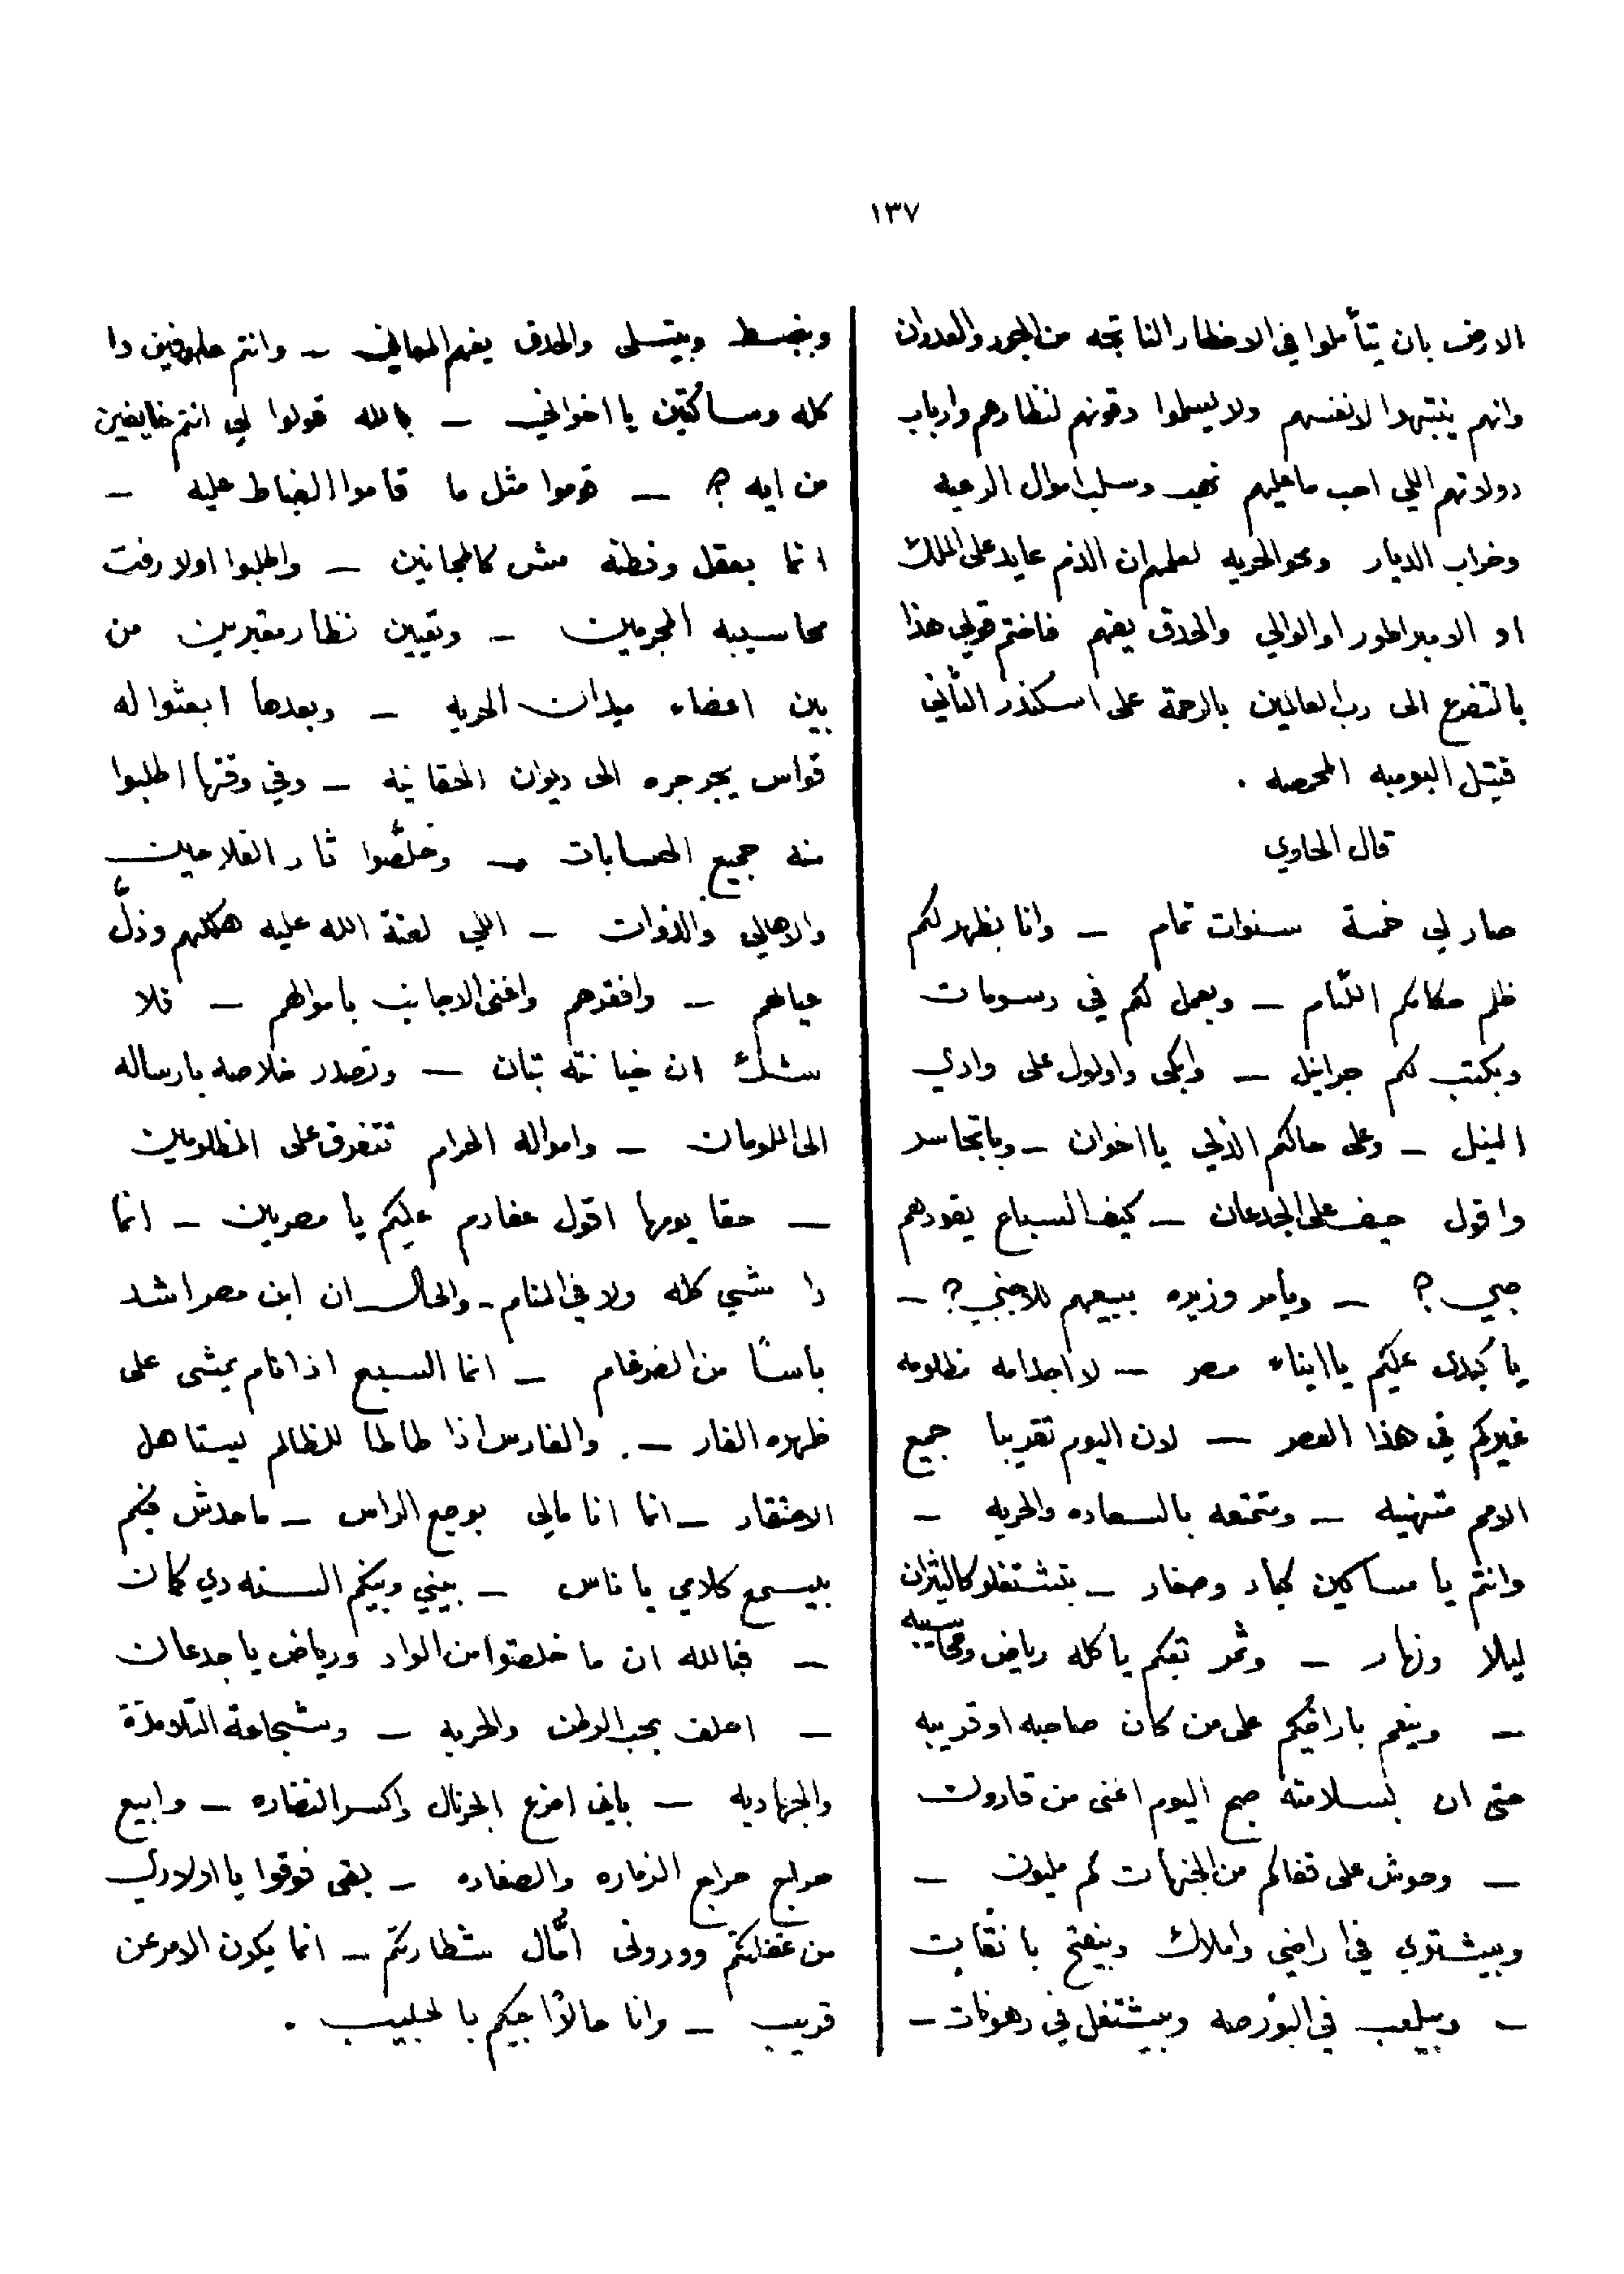 ١٣٧
الارض بان يتأملوا في الاخطار الناتجه من الجور والعدوان
وانهم ينتبهوا لانفسهم ولا يسلموا دقونهم لنظارهم وارباب
دولاتهم اللي احب ما عليهم نهب وسلب اموال الرعيه
وخراب الديار ومحو الحريه لعلهم ان الذم عايد على الملك
او الامبراطور او الوالي والحدق يفهم فاختم قولي هذا
بالتضرع الى رب العالمين بالرحمة على اسكندر الثاني
قتيل البومبه المحمصه .
قال الحاوي
صار لي خمسة سنوات تمام – وانا بظهر لكم
ظلم حكامكم اللئام – وبعمل لكم في رسومات
وبكتب لكم جرانيل – وابكي واولول على وادي
النيل – وعلى حالكم الذلي يا اخوان – وباتحاسد
واقول حيف على الجدعان – كيف السباع يقودهم
صبي ? – ويأمر وزيره ببيعهم للاجنبي ? –
يا كبدي عليكم يا ابناء مصر – لا اجد امه مظلومه
غيركم في هذا العصر – لان اليوم تقريبا جميع
الامم متهنيه – ومتمتعه بالسعاده والحريه –
وانتم يا مساكين كبار وصغار – بتشتغلو كالثيران
ليلا ونهار – وثمر تعبكم ياكله رياض ومحاسيبه
– وينعم باراضيكم على من كان صاحبه او قريبه
حتى ان بسلامته صبح اليوم اغنى من قارون
– وحوش على قفاكم من الجنيهات كم مليون –
وبيشتري في اراضي واملاك وبيفتح بانقات
– وبيلعب في البورصه وبيشتغل في رهونات –
وبنبسط وبيتسلى والحدق يفهم المعاني – وانتم عارفين دا
كله وساكتين يا اخواني – بالله قولوا لي انتم خايفين
من ايه ? – قوموا مثل ما قاموا الضباط عليه –
انما بعقل وفطنه مش كالمجانين – واطلبوا اولا رفت
محاسيبه المجرمين – وتعيين نظار معتبرين من
بين اعضاء ميدان الحريه – وبعدها ابعثوا له
قواس يجرجره الى ديوان الحقانيه – وفي وقتها اطلبوا
منه جميع الحسابات – وخلّصوا تار الفلاحين
والاهالي والذوات – اللي لعنة الله عليه هلكهم وذلّ
عيالهم – وافقرهم واغنى الاجانب باموالهم – فلا
شك ان خيانته تبان – وتصدر خلاصه بارساله
الى اللومان – وامواله الحرام تتفرق على المظلومين
– حقا يومها اقول عفارم عليكم يا مصريين – انما
دا شي كله ولا في المنام – والحال ان ابن مصر اشد
بأسًا من الضرغام – انما السبع اذا نام يمشي على
ظهره الفار – . والفارس اذا طاطا للظالم يستاهل
الاحتقار – انما انا مالي بوجع الراس – ماحدش فيكم
بيسمع كلامي يا ناس – بيني وبينكم السنه دي كمان
– فبالله ان ما خلصتوا من الواد ورياض يا جدعان
– احلف بحب الوطن والحريه – وشجاعة التلامذة
والجهاديه – باني امزع الجرنال واكسر النضاره – وابيع
حراج حراج الزماره والصفاره – بقى فوقوا يا اولادي
من غفلتكم ووروني امّال شطارتكم – انما يكون الامر عن
قريب – وانا حالاً اجيكم يا لحبيب .